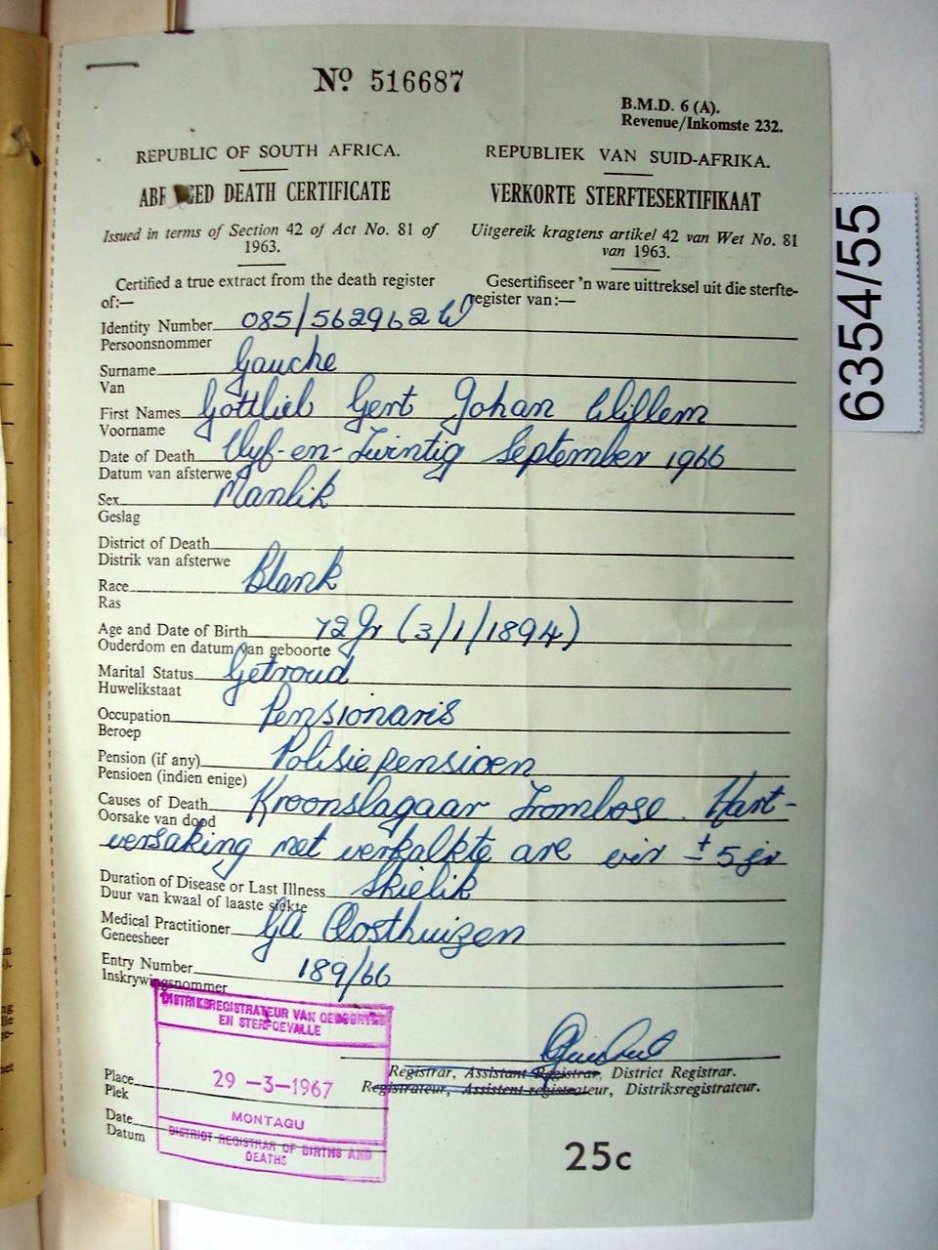 No 516687
B.M.D. 6 (A).
Revenue/Inkomste 232.
REPUBLIC OF SOUTH AFRICA.
REPUBLIEK VAN SUID-AFRIKA.
DEATH CERTIFICATE
VERKORTE STERFTESERTIFIKAAT
Issued in terms of Section 42 of Act No. 81 of
1963.
Uitgereik kragtens artikel 42 van Wet No. 81
van 1963.
Certified a true extract from the death register
of:—
Gesertifiseer 'n ware uittreksel uit die sterfte-
register van:—
Identity Number 085/562962 W
Persoonsnommer
Surname Gauche
Van
First Names Gottlieb Gert Johan Willem
Voorname
Date of Death Vyf-en-Twintig September 1966
Datum van afsterwe
Sex Manlik
Geslag
District of Death
Distrik van afsterwe
Race Blank
Ras
Age and Date of Birth 72 Jr (3/1/1894)
Ouderdom en datum van geboorte
Marital Status Getroud
Huwelikstaat
Occupation Pensionaris
Beroep
Pension (if any) Polisiepensioen
Pensioen (indien enige)
Causes of Death Kroonslagaar Trombose. Hart-
Oorsake van dood
versaking met verkalkte are vir ± 5 jr
Duration of Disease or Last Illness Skielik
Duur van kwaal of laaste siekte
Medical Practitioner GA Oosthuizen
Geneesheer
Entry Number 189/66
Inskrywingsnommer
DISTRIKSREGISTRATEUR VAN GEBOORTES
EN STERFGEVALLE
Registrar, Assistant Registrar, District Registrar.
Registrateur, Assistent-registrateur, Distriksregistrateur.
Place
Plek
29 -3-1967
Date
Datum
MONTAGU
DISTRICT REGISTRAR OF BIRTHS AND
DEATHS
25c
6354/55